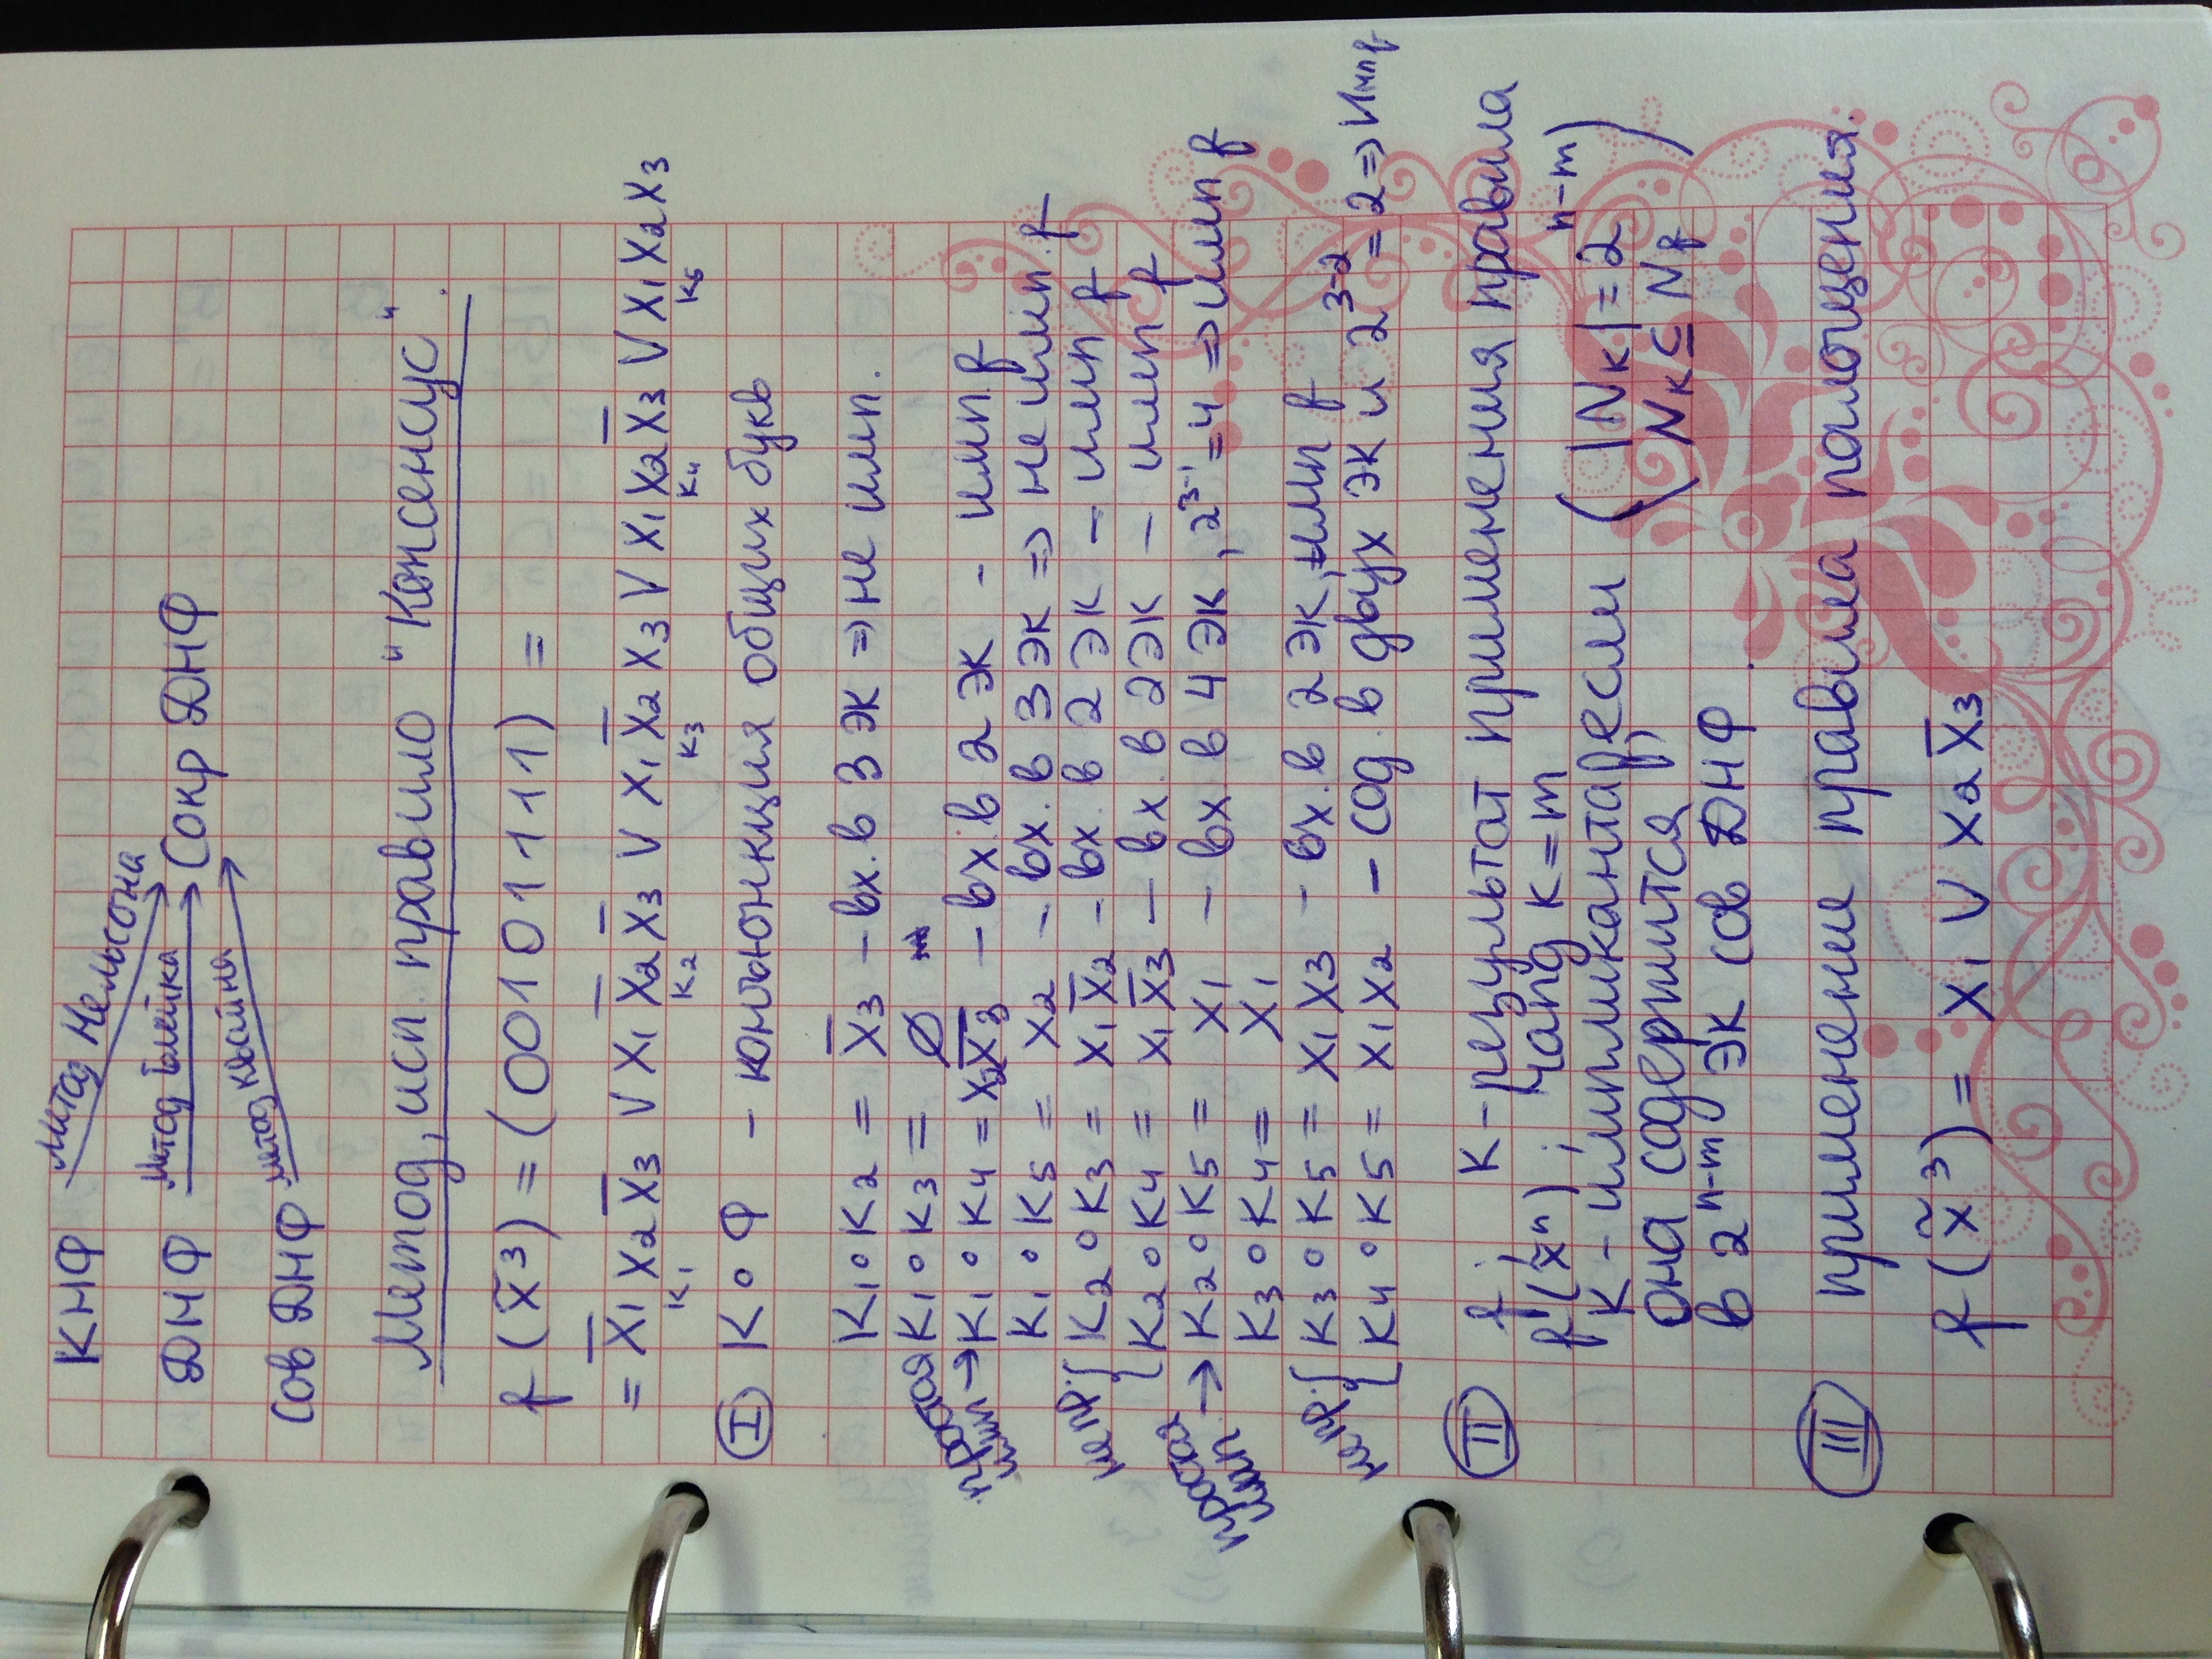 КНФ метод Нельсона
ДНФ метод Блейка Сокр ДНФ
Сов ДНФ метод Квайна
Метод, исп. правило "Консенсус".
f(x̃³) = (00101111) =
= x̅₁x₂x̅₃ ∨ x₁x̅₂x̅₃ ∨ x₁x̅₂x₃ ∨ x₁x₂x̅₃ ∨ x₁x₂x₃
K₁ K₂ K₃ K₄ K₅
Ⓘ K∘Ф – конъюнкция общих букв
K₁∘K₂ = x̅₃ – вх. в 3 ЭК ⇒ не имп.
K₁∘K₃ = ∅
простая имп → K₁∘K₄ = x₂x̅₃ – вх. в 2 ЭК – имп. f
K₁∘K₅ = x₂ – вх. в 3 ЭК ⇒ не имп. f
не пр. { K₂∘K₃ = x₁x̅₂ – вх. в 2 ЭК – имп f
K₂∘K₄ = x₁x̅₃ – вх. в 2 ЭК – имп f
простая имп. → K₂∘K₅ = x₁ – вх в 4 ЭК, 2³⁻¹=4 ⇒ имп f
K₃∘K₄ = x₁
не пр. { K₃∘K₅ = x₁x₃ – вх. в 2 ЭК, имп f
K₄∘K₅ = x₁x₂ – сод. в двух ЭК и 2³⁻²=2 ⇒ Имп f
Ⓘⓘ K – результат применения правила
f(x̃ⁿ), ранг K=m
K – импликанта f, если ( |N_K| = 2ⁿ⁻ᵐ
она содержится N_K ⊆ N_f )
в 2ⁿ⁻ᵐ ЭК сов ДНФ.
III применение правила поглощения.
f(x̃³) = x₁ ∨ x₂x̅₃